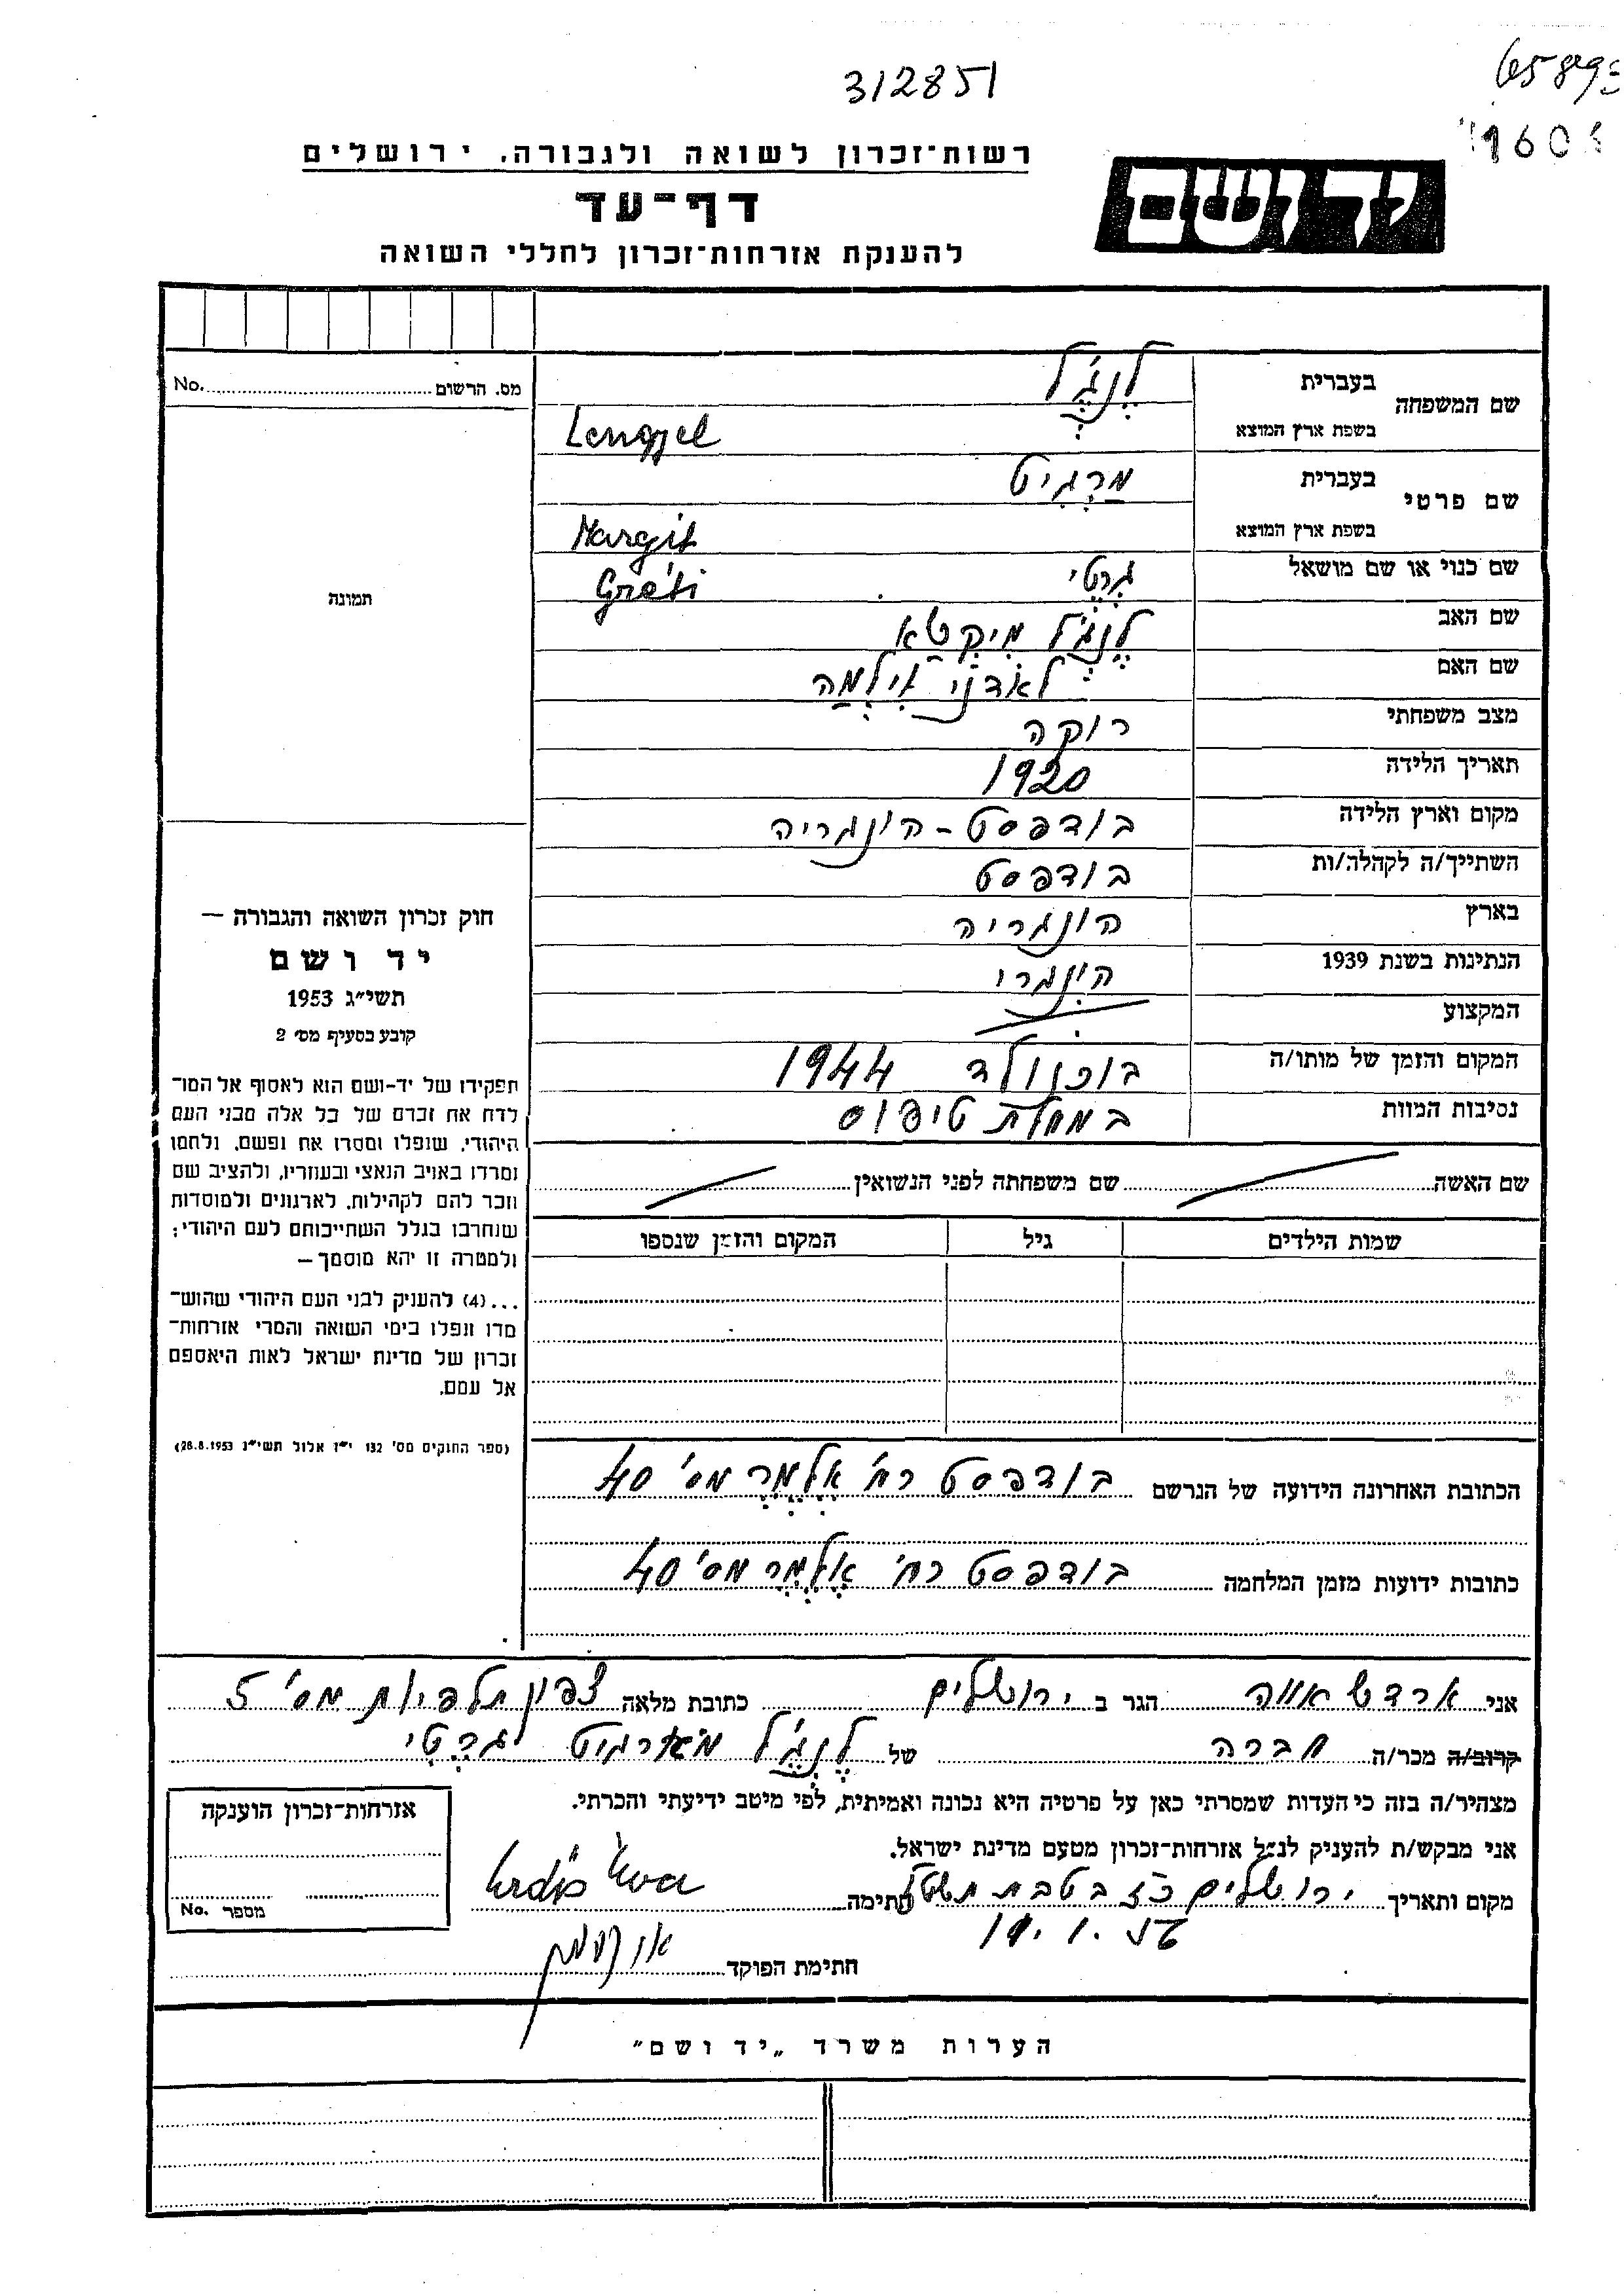 312851
רשות־זכרון לשואה ולגבורה, ירושלים
יד ושם
דף־עד
להענקת אזרחות־זכרון לחללי השואה
מס. הרשום No.
שם המשפחה
בעברית לֶנְגֶ'ל
בשפת ארץ המוצא Lengyel
שם פרטי
בעברית מַרְגִיט
בשפת ארץ המוצא Margit
שם כנוי או שם מושאל גְרֶטִי Gréti
שם האב לֶנְגֶ'ל
שם האם אִילְמַה
מצב משפחתי רוקה
תאריך הלידה 1920
מקום וארץ הלידה בודפסט - הונגריה
השתייך/ה לקהלה/ות בודפסט
בארץ הונגריה
הנתינות בשנת 1939 הונגרי
המקצוע
המקום והזמן של מותו/ה בוכנולד 1944
נסיבות המוות במחלת טיפוס
תמונה
חוק זכרון השואה והגבורה —
יד ושם
תשי״ג 1953
קובע בסעיף מס׳ 2
תפקידו של יד-ושם הוא לאסוף אל המו־
לדת את זכרם של כל אלה מבני העם
היהודי, שנפלו ומסרו את נפשם, נלחמו
ומרדו באויב הנאצי ובעוזריו, ולהציב שם
וזכר להם לקהילות, לארגונים ולמוסדות
שנחרבו בגלל השתייכותם לעם היהודי;
ולמטרה זו יהא מוסמך —
...(4) להעניק לבני העם היהודי שהוש־
מדו ונפלו בימי השואה והמרי אזרחות־
זכרון של מדינת ישראל לאות היאספם
אל עמם.
(ספר החוקים מס׳ 132 י״ז אלול תשי״ג 28.8.1953)
שם האשה שם משפחתה לפני הנשואין
שמות הילדים גיל המקום והזמן שנספו
הכתובת האחרונה הידועה של הנרשם בודפסט רח' אֶלֶמֶר מס' 40
כתובות ידועות מזמן המלחמה בודפסט רח' אֶלֶמֶר מס' 40
אני ארדש אווה הגר ב ירושלים כתובת מלאה צפון תלפיות מס' 5
קרוב/ה מכר/ה חברה של לֶנְגֶ'ל מארגיט גרֶטִי
מצהיר/ה בזה כי העדות שמסרתי כאן על פרטיה היא נכונה ואמיתית, לפי מיטב ידיעתי והכרתי.
אני מבקש/ת להעניק לנ״ל אזרחות־זכרון מטעם מדינת ישראל.
מקום ותאריך ירושלים בטבת חתימה Erdős Éva
חתימת הפוקד
אזרחות־זכרון הוענקה
מספר No.
הערות משרד „יד ושם״